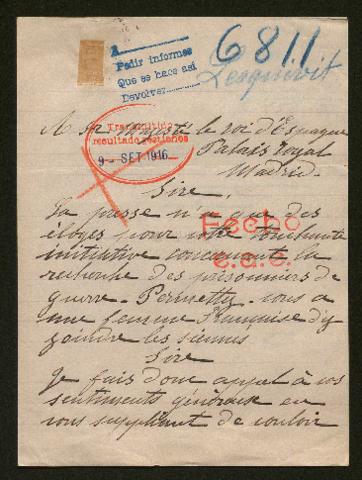 Pedir informes
Que se hace asi
Devolver
6811
Lesquivit
A Sa Majesté le roi d'Espagne
Palais Royal
Madrid.
Transmitido
resultado gestiones
9 - SET 1916
Sire,
La presse n'a que des
éloges pour votre
Fecho
initiative concernant la
recherche des prisonniers de
guerre. Permettez-vous à
une femme Française d'y
joindre les siennes
Sire
Je fais donc appel à vos
sentiments généreux en
vous suppliant de vouloir